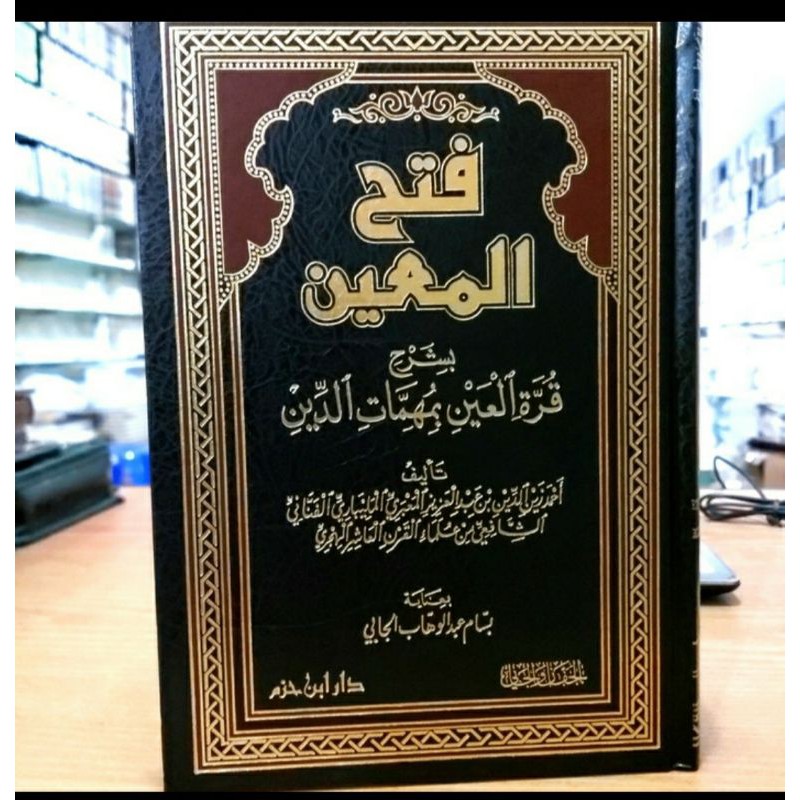 فتح
المعين
بشرح
قُرَّةِ العَيْنِ بِمُهِمَّاتِ الدِّينِ
تأليف
أحمد زين الدين بن عبد العزيز المعبري المليباري الفناني
الشافعي من علماء القرن العاشر الهجري
بعناية
بسام عبد الوهاب الجابي
الجفان والجابي
دار ابن حزم